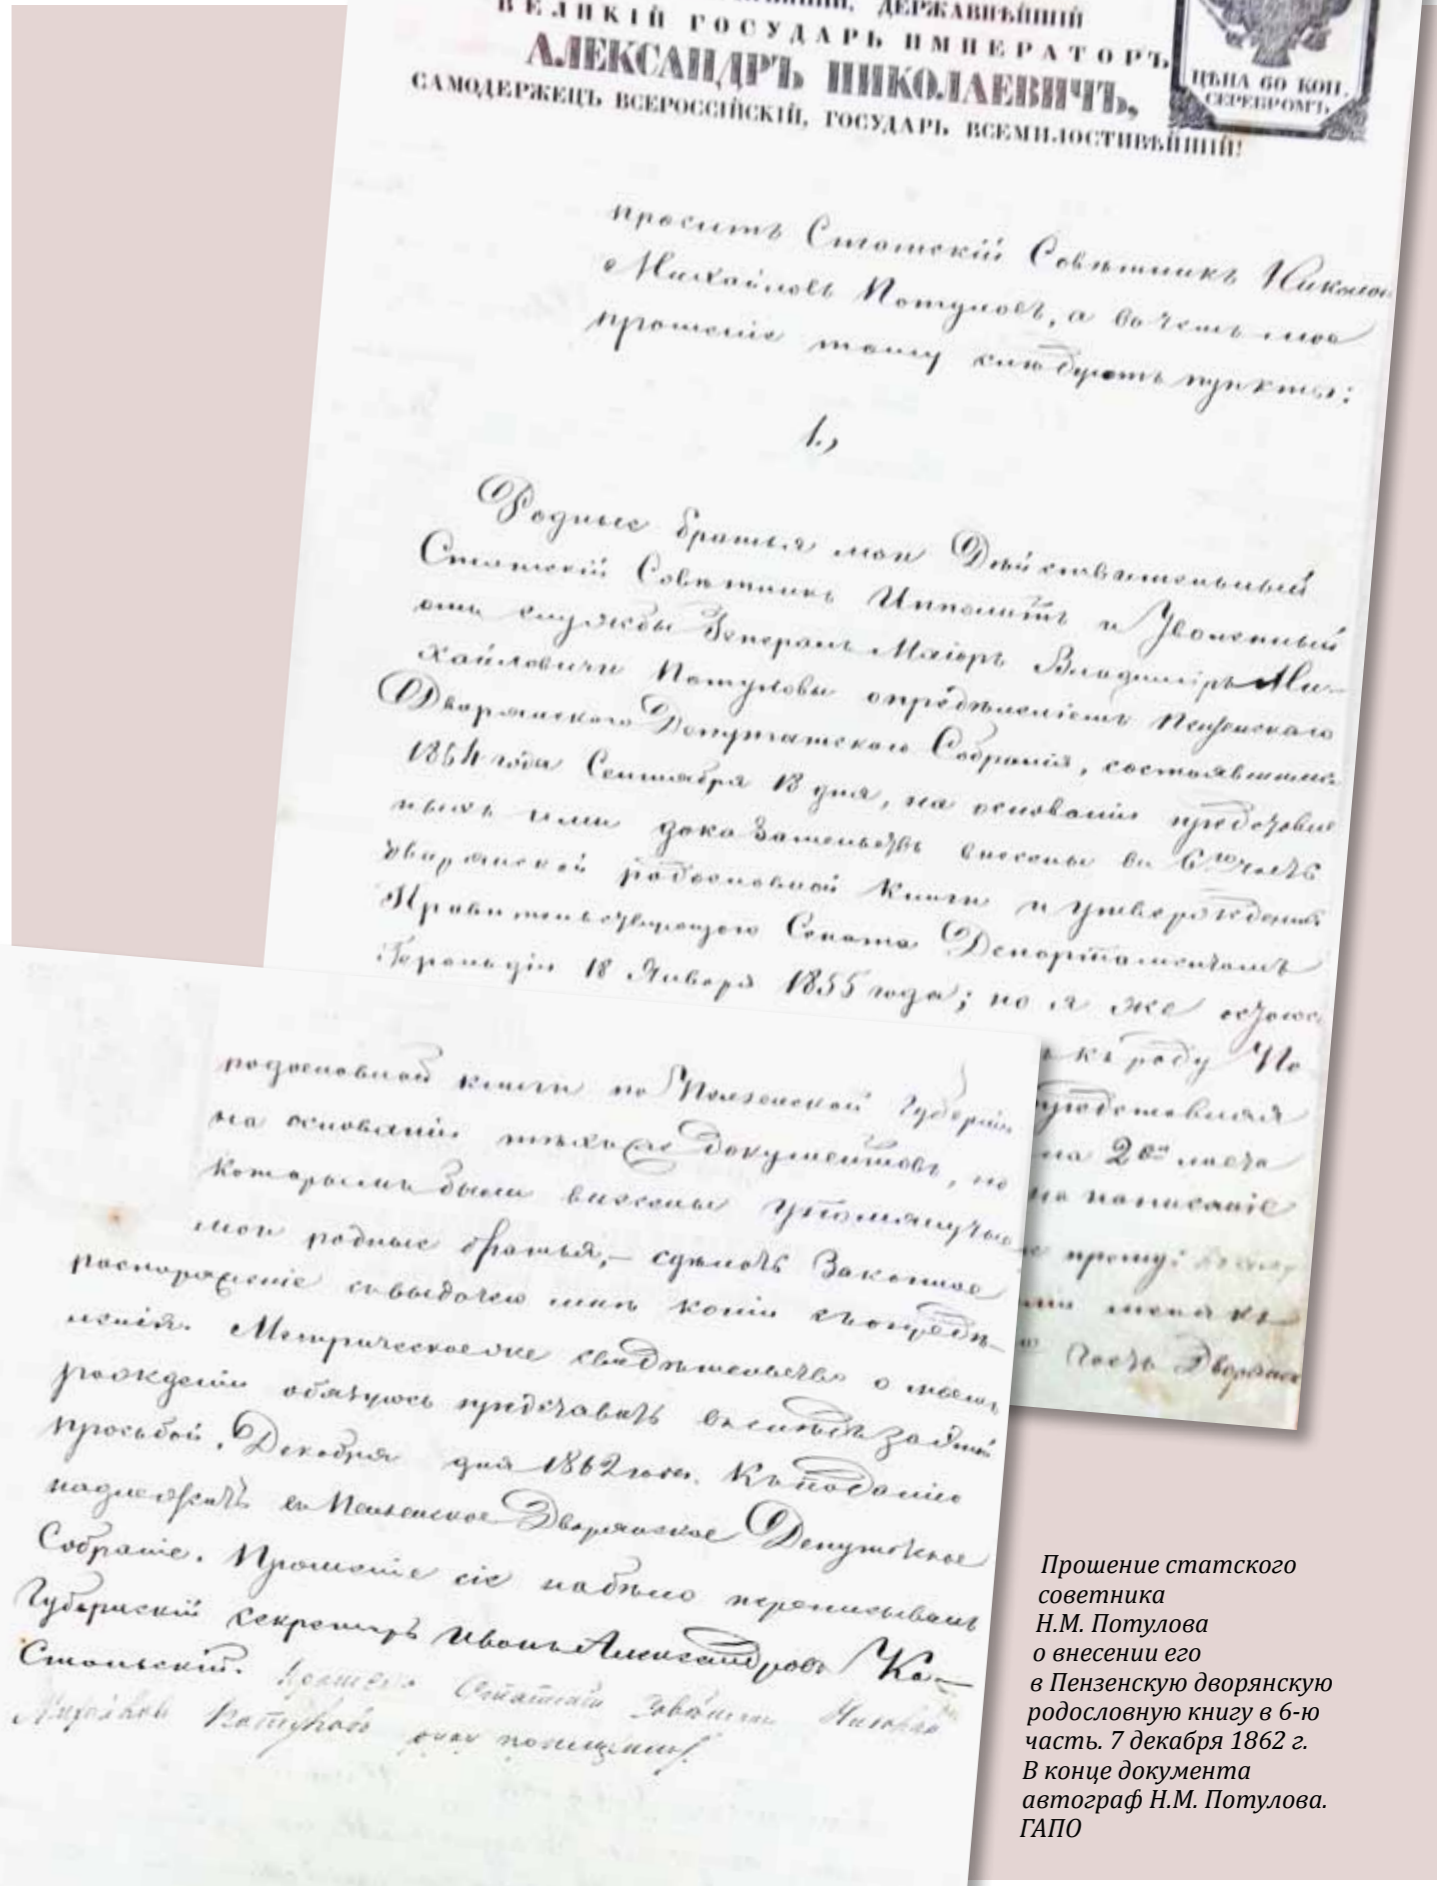 ДЕРЖАВНѢЙШІЙ
ВЕЛИКІЙ ГОСУДАРЬ ИМПЕРАТОРЪ
АЛЕКСАНДРЪ НИКОЛАЕВИЧЪ,
САМОДЕРЖЕЦЪ ВСЕРОССІЙСКІЙ, ГОСУДАРЬ ВСЕМИЛОСТИВѢЙШІЙ!
ЦѢНА 60 КОП.
СЕРЕБРОМЪ.
проситъ Статскій Совѣтникъ Николай
Михайловъ Потуловъ, а въ чемъ мое
прошеніе тому слѣдуютъ пункты:
1.,
Родные братья мои Дѣйствительный
Статскій Совѣтникъ Ипполитъ и Уволенный
отъ службы Генералъ Маіоръ Владиміръ Ми-
хайловичи Потуловы опредѣленіемъ Пензенскаго
Дворянскаго Депутатскаго Собранія, состоявшимся
1854 года Сентября 13 дня, на основаніи представлен
ныхъ ими доказательствъ внесены въ 6ю часть
дворянской родословной книги и утверждены
Правительствующаго Сената Департаментомъ
Герольдіи 18 Января 1855 года; но я же
къ роду По
представляя
на 2хъ листа
написаніе
прошу:
меня къ
часть Дворянск
родословной книги по Пензенской Губерніи
на основаніи тѣхъ же документовъ, по
которымъ были внесены упомянутые
мои родные братья, – сдѣлать Законное
распоряженіе съ выдачею мнѣ копіи съ опредѣ-
ленія. Метрическое же свидѣтельство о моемъ
рожденіи обязуюсь представить въ слѣдъ за этой
просьбой. Декабря дня 1862 года. Къ поданію
надлежитъ въ Пензенское Дворянское Депутатское
Собраніе. Прошеніе сіе набѣло переписывалъ
Губернскій секретарь Иванъ Александровъ Ка-
Статскій Совѣтникъ Николай
Михайловъ Потуловъ руку приложилъ.
Прошение статского
советника
Н.М. Потулова
о внесении его
в Пензенскую дворянскую
родословную книгу в 6-ю
часть. 7 декабря 1862 г.
В конце документа
автограф Н.М. Потулова.
ГАПО